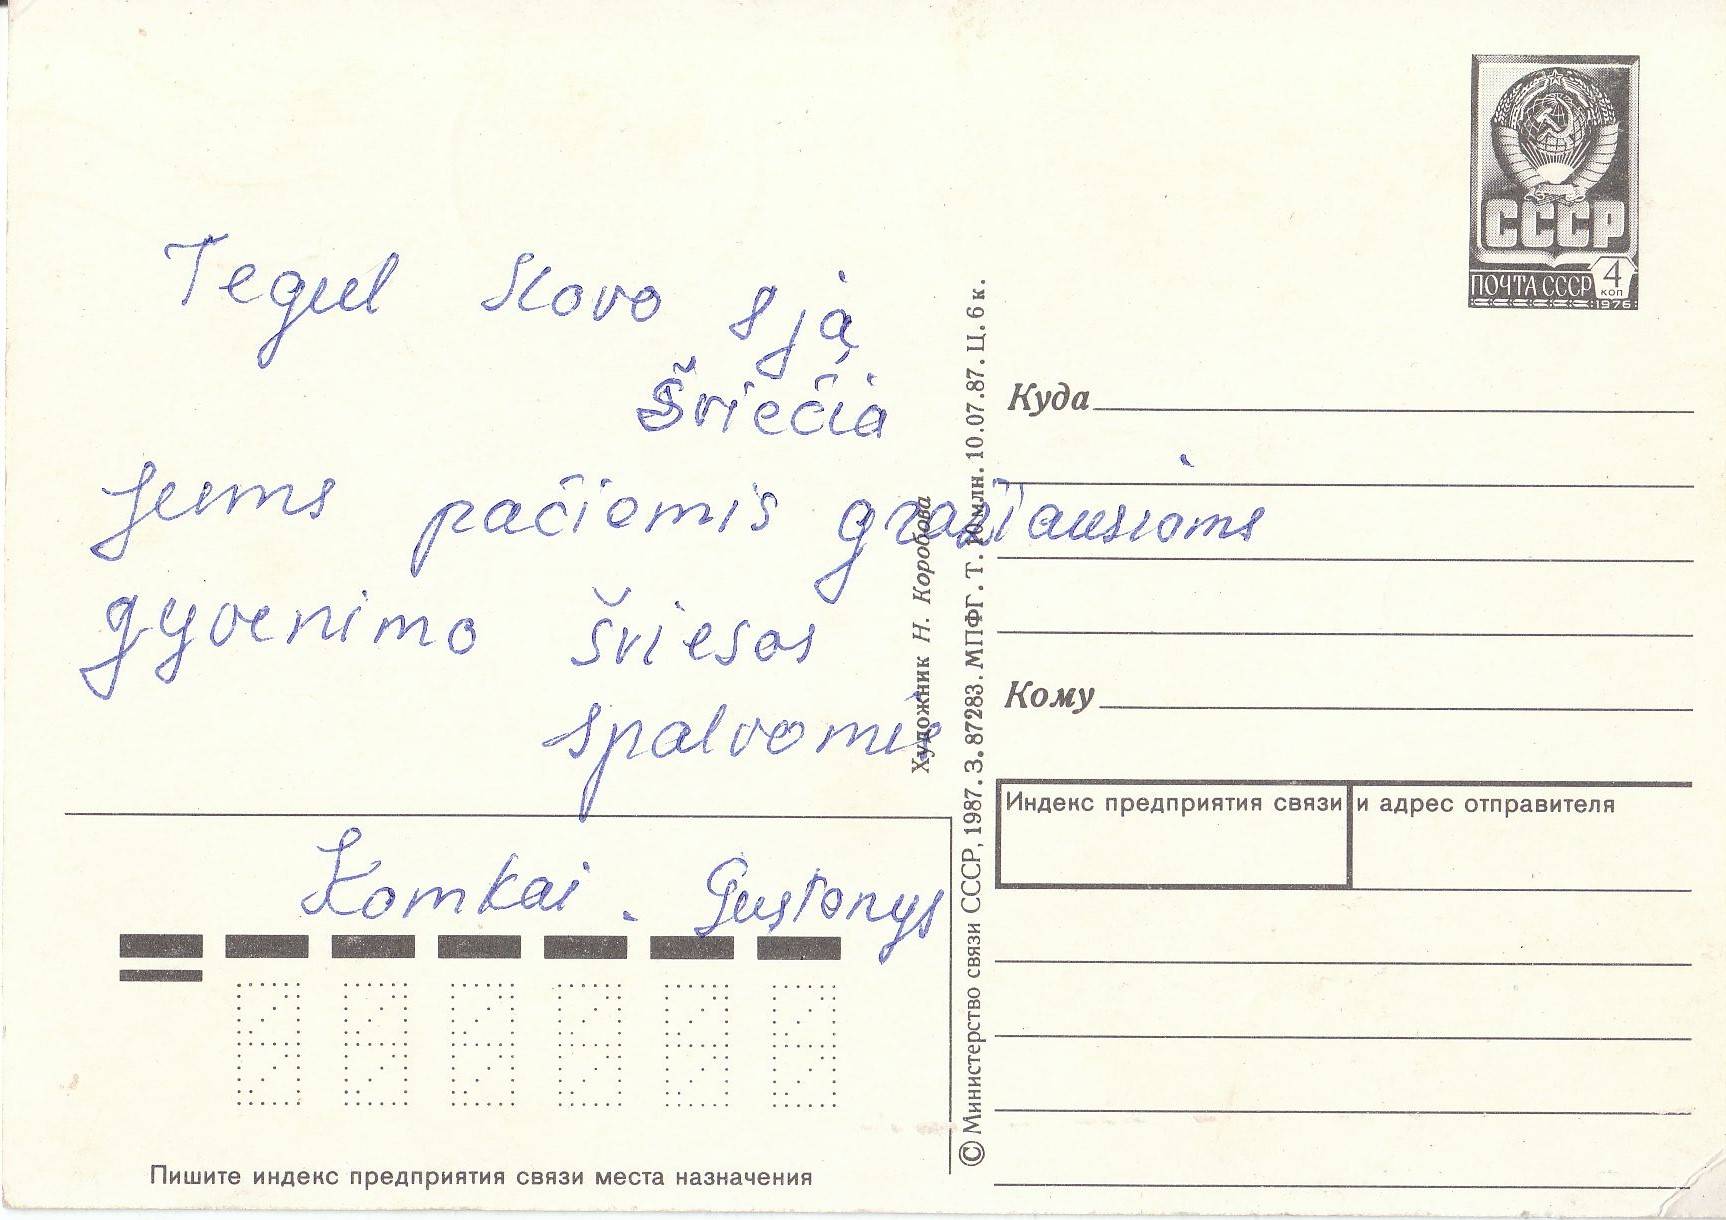 Tegul Kovo 8 ją
šviečia
Jums pačiomis gražiausioms
gyvenimo šviesos
spalvomis
Komkai. Gustonys
СССР
ПОЧТА СССР 4 КОП 1976
Куда
Кому
Индекс предприятия связи и адрес отправителя
Художник Н. Коробова
© Министерство связи СССР, 1987. З. 87283. МПФГ. Т. 10 млн. 10.07.87. Ц. 6 к.
Пишите индекс предприятия связи места назначения